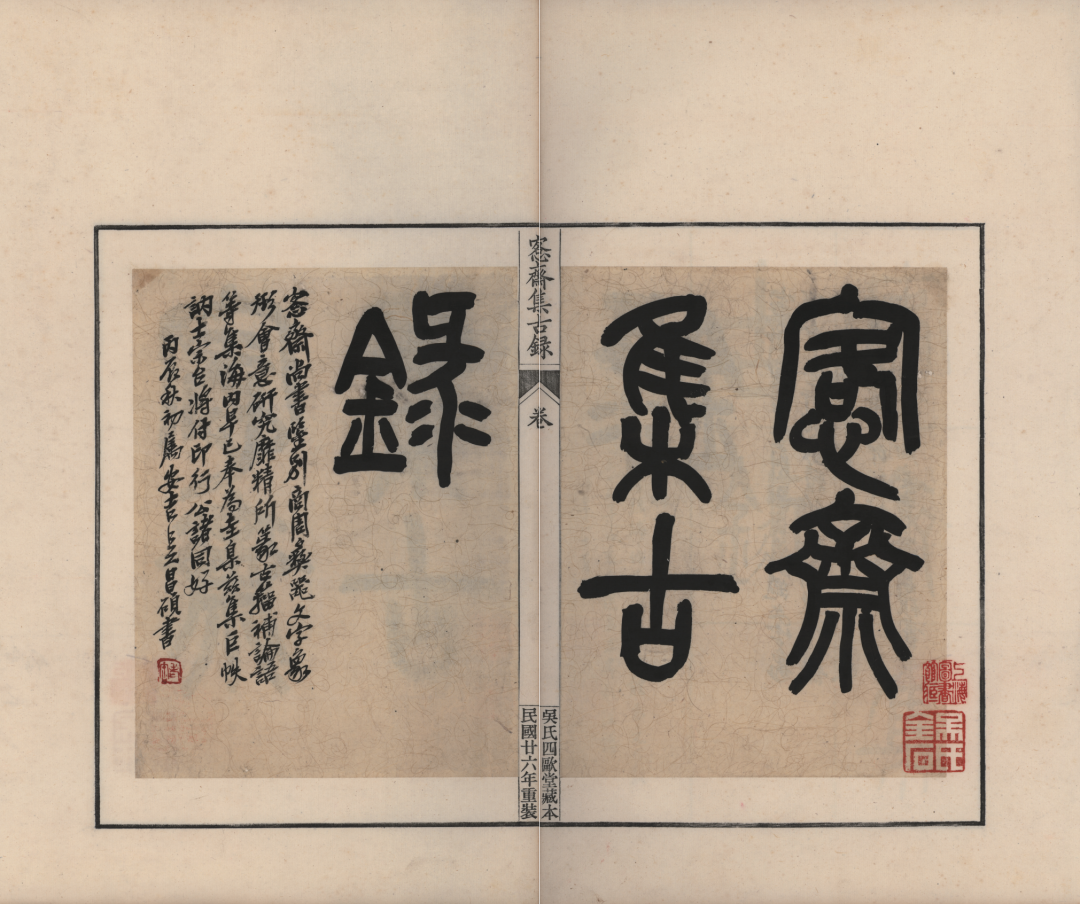 愙齋
集古
錄
愙齋尚書鑒別商周彝器文字象
形會意研究靡精所篆古籀補論語
等集海內早已奉為圭臬茲集巨帙
訥士宗台將付印行公諸同好
丙辰秋初屬安吉吳昌碩書
愙齋集古録
卷
吳氏四歐堂藏本
民國廿六年重裝
上海圖書館藏
吳氏金石